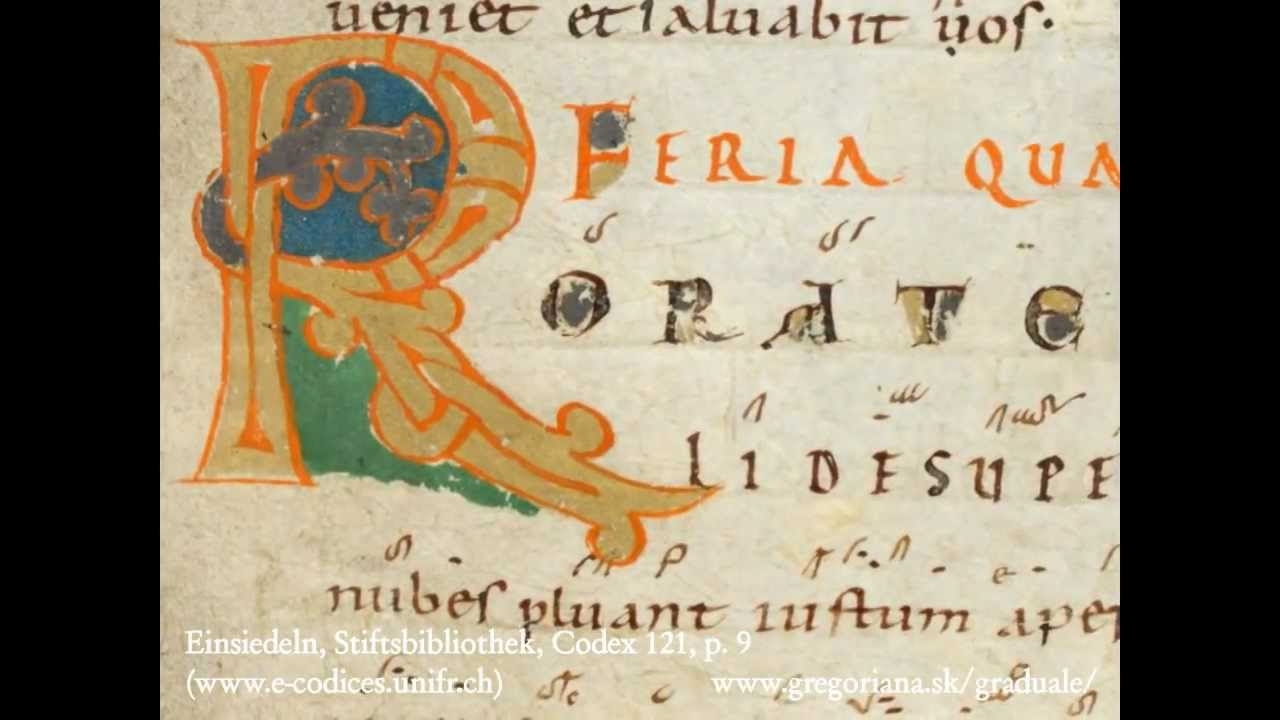 ueniet et saluabit uos.
FERIA QUA
RORATE
LI DESUPE
nubes pluant iustum aper
Einsiedeln, Stiftsbibliothek, Codex 121, p. 9
(www.e-codices.unifr.ch)
www.gregoriana.sk/graduale/